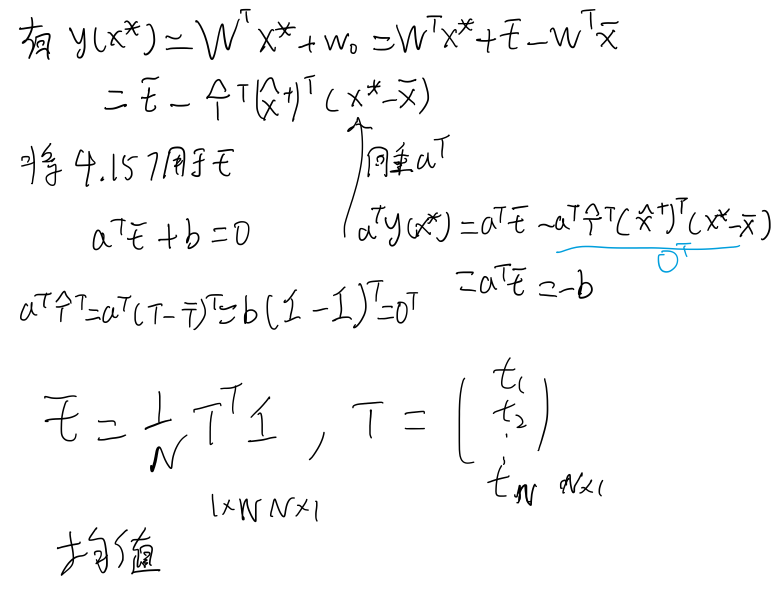 有 y(x*) ≃ Wᵀx* + w₀ = Wᵀx* + t̄ - Wᵀx̄
= t̄ - T̂ᵀ(x̂⁺)ᵀ(x* - x̄)
将 4.157用于 t̄
同乘 aᵀ
aᵀt̄ + b = 0
aᵀy(x*) = aᵀt̄ - aᵀT̂ᵀ(x̂⁺)ᵀ(x* - x̄)
0ᵀ
= aᵀt̄ = -b
aᵀT̂ᵀ = aᵀ(T - T̄)ᵀ = b(1 - 1)ᵀ = 0ᵀ
t̄ = 1/N Tᵀ1 , T = (t₁ t₂ ⋮ t_N) N×1
1×N N×1
均值